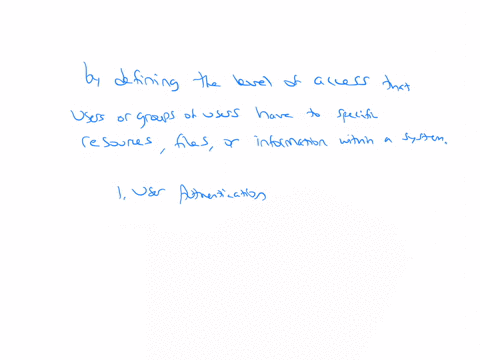 by defining the level of access that
users or groups of users have to specific
resources, files, or information within a system.
1. User Authentication